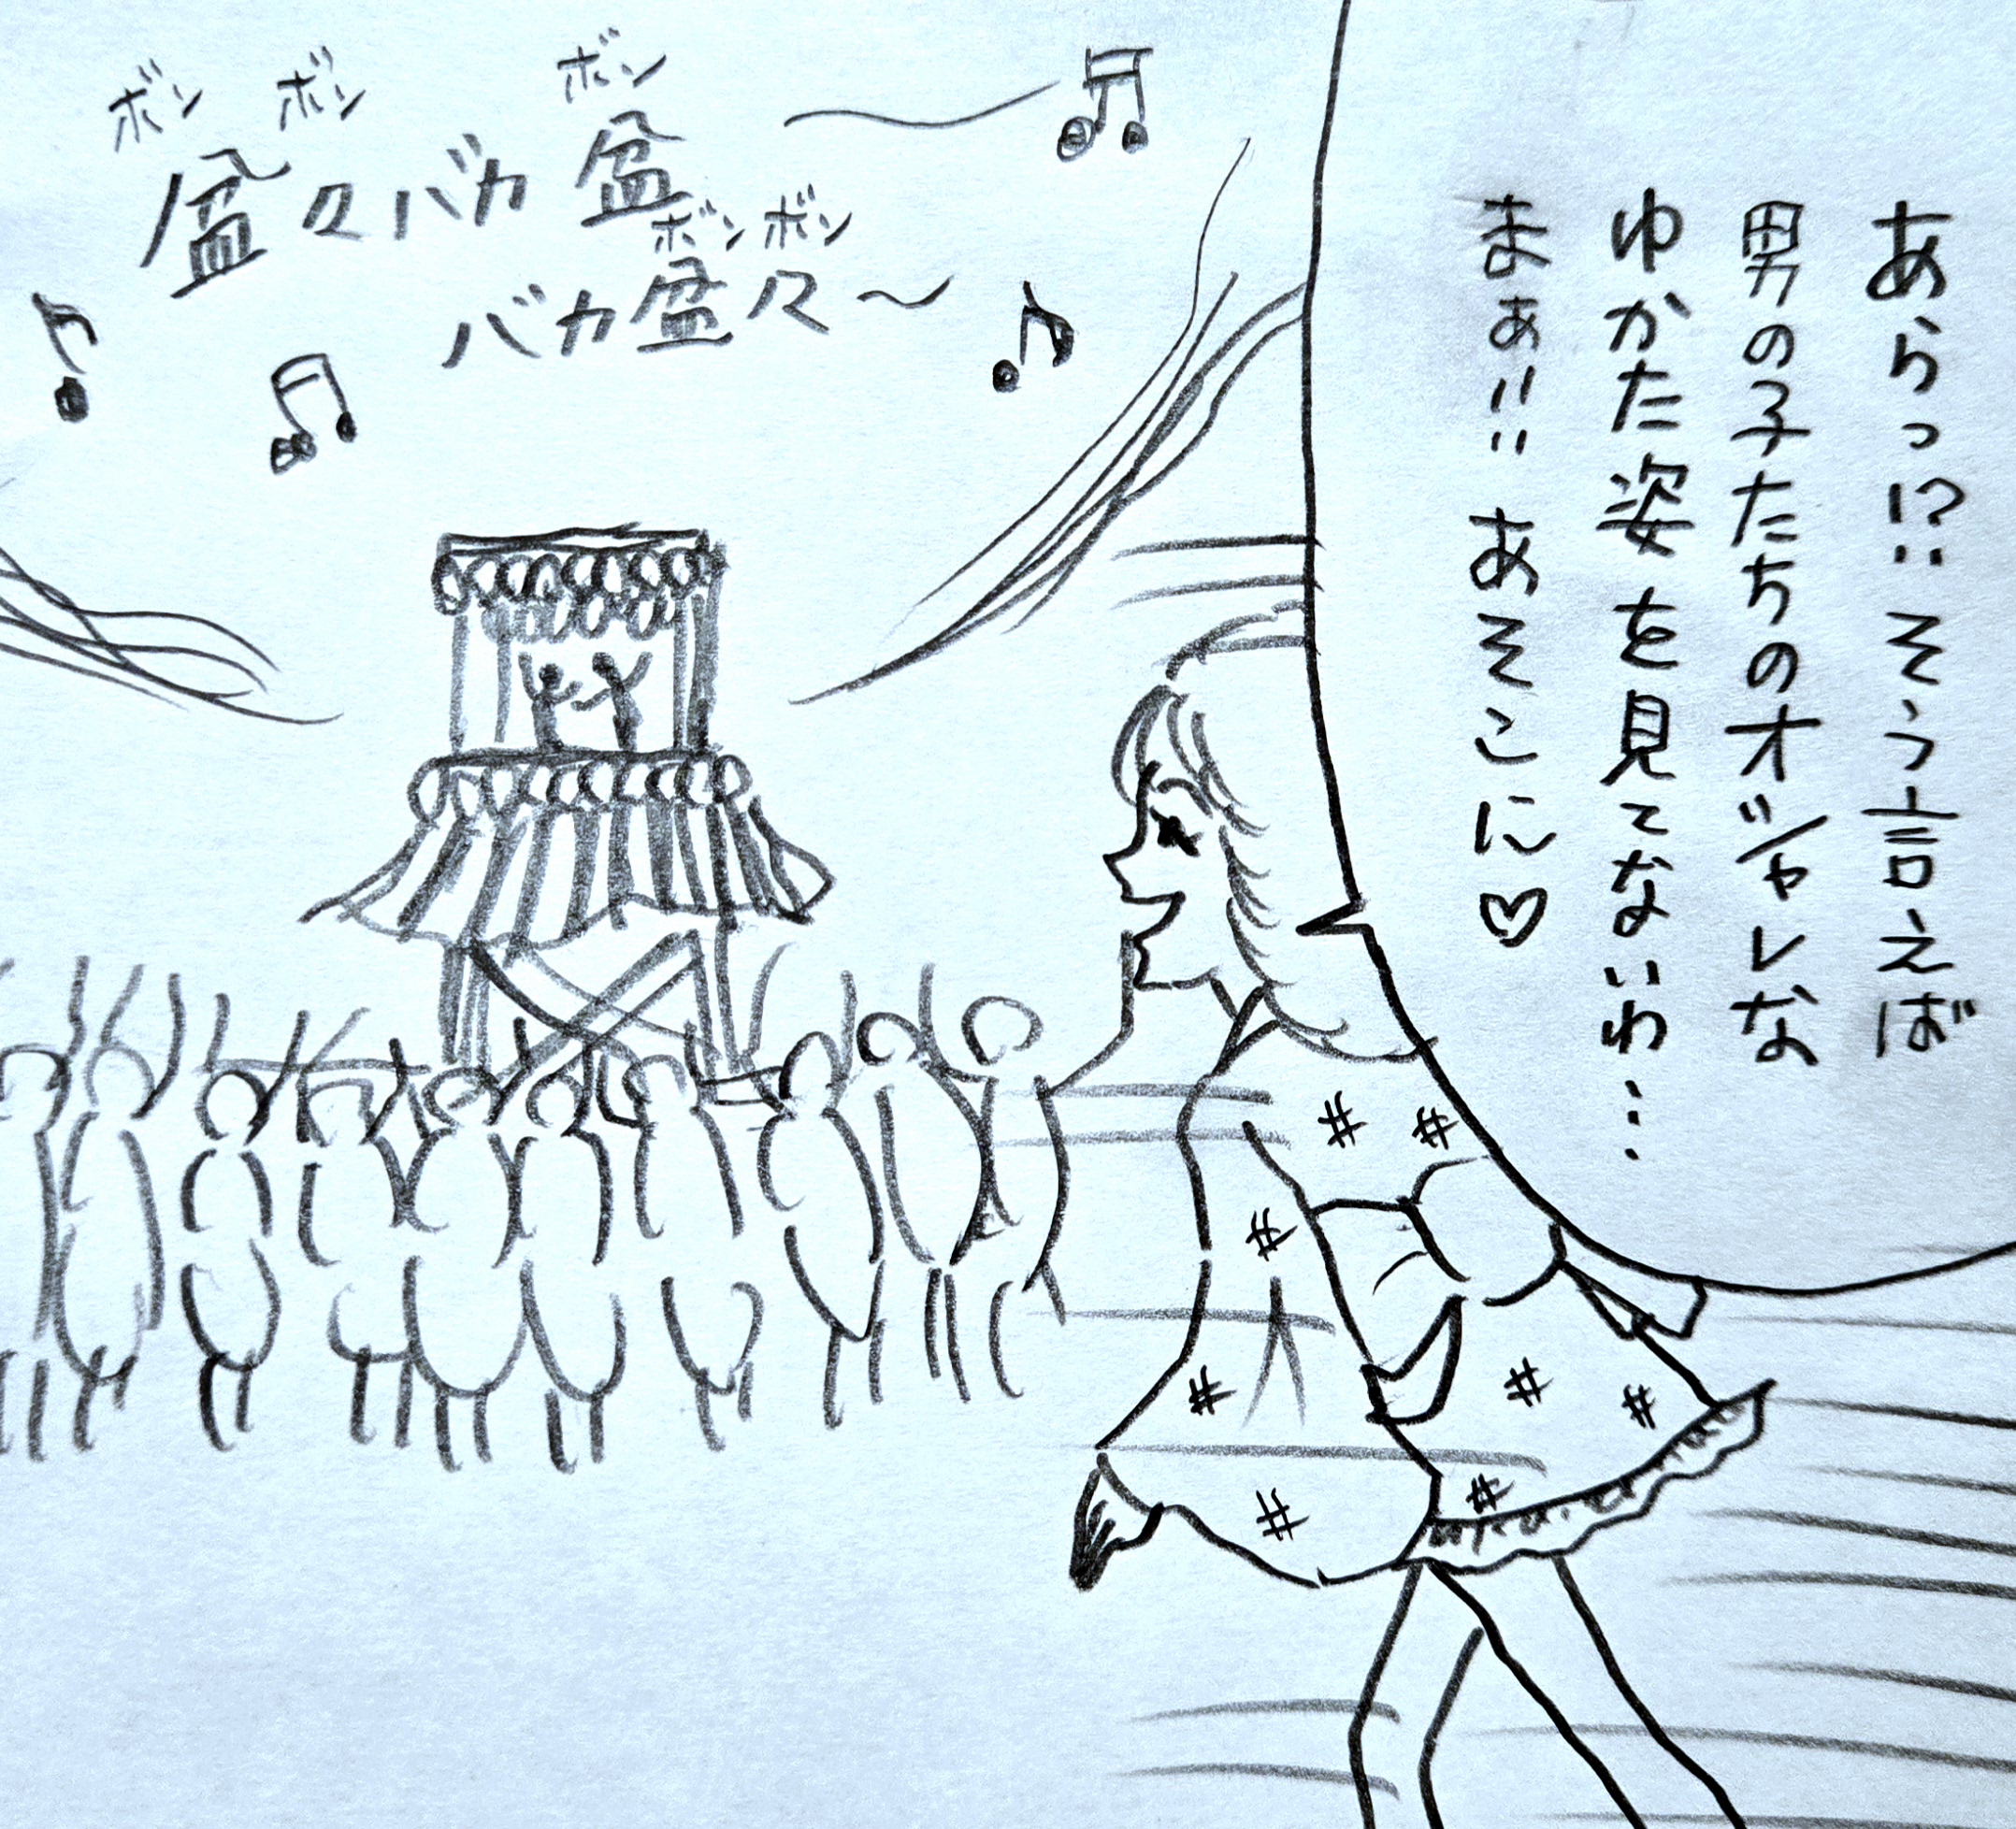 あらっ!?そう言えば
男の子たちのオシャレな
ゆかた姿を見てないわ…
まぁ!!あそこに♡
ボン ボン ボン
盆々バカ盆〜♫
ボン ボン
バカ盆々〜♪